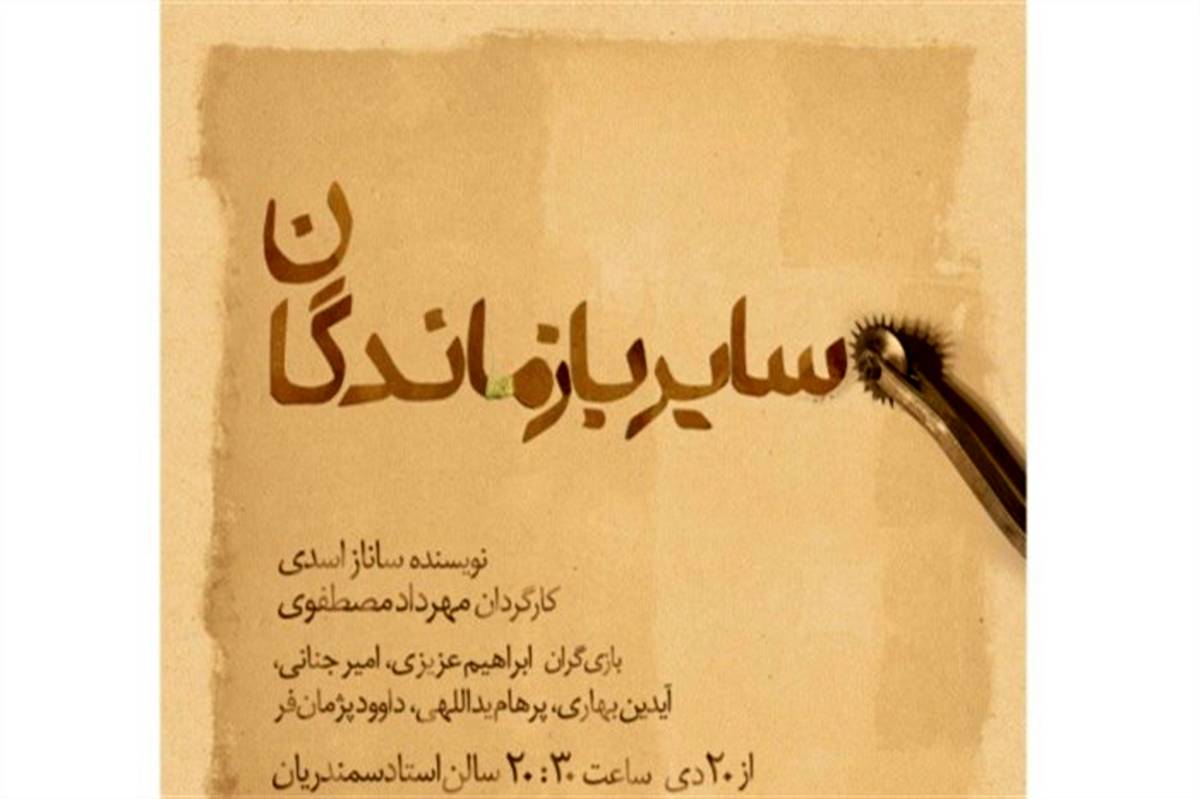 سایر بازماندگان
نویسنده ساناز اسدی
کارگردان مهرداد مصطفوی
بازی‌گران ابراهیم عزیزی، امیر جنانی،
آیدین بهاری، پرهام یداللهی، داوود پژمان‌فر
از ۲۰ دی ساعت ۲۰:۳۰ سالن استاد سمندریان